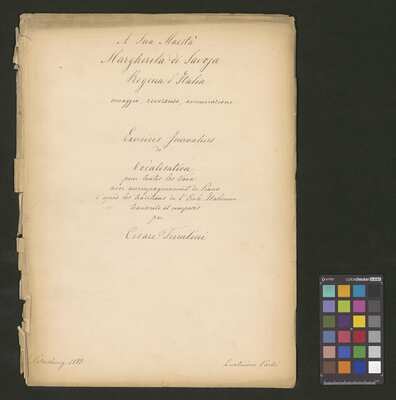 A Sua Maestà
Margherita di Savoja
Regina d'Italia
omaggio, riverenza, ammirazione
Exercices Journaliers
de
Vocalisation
pour toutes les voix
avec accompagnement de Piano
d'après les traditions de l'École Italienne
transcrits et composés
par
Cesare